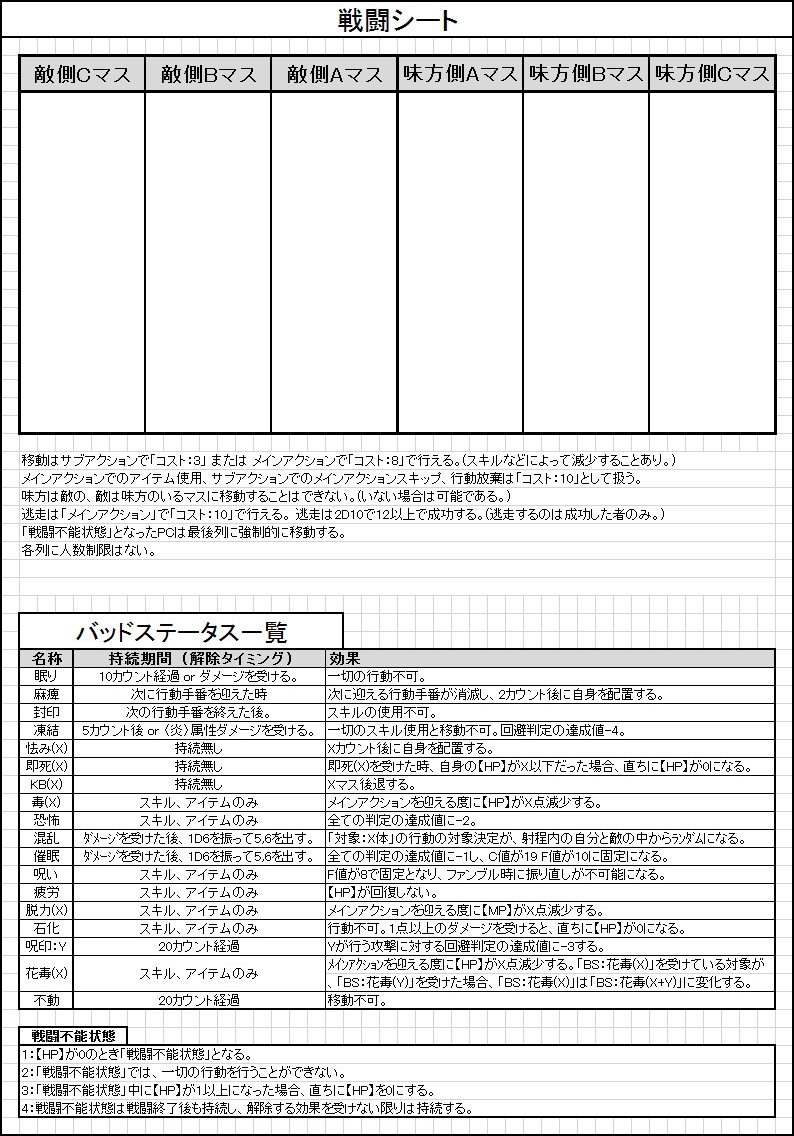 戦闘シート
敵側Cマス 敵側Bマス 敵側Aマス 味方側Aマス 味方側Bマス 味方側Cマス
移動はサブアクションで「コスト：3」 または メインアクションで「コスト：8」で行える。（スキルなどによって減少することあり。）
メインアクションでのアイテム使用、サブアクションでのメインアクションスキップ、行動放棄は「コスト：10」として扱う。
味方は敵の、敵は味方のいるマスに移動することはできない。（いない場合は可能である。）
逃走は「メインアクション」で「コスト：10」で行える。 逃走は2D10で12以上で成功する。（逃走するのは成功した者のみ。）
「戦闘不能状態」となったPCは最後列に強制的に移動する。
各列に人数制限はない。
バッドステータス一覧
名称 持続期間（解除タイミング） 効果
眠り 10カウント経過 or ダメージを受ける。 一切の行動不可。
麻痺 次に行動手番を迎えた時 次に迎える行動手番が消滅し、2カウント後に自身を配置する。
封印 次の行動手番を終えた後。 スキルの使用不可。
凍結 5カウント後 or 〈炎〉属性ダメージを受ける。 一切のスキル使用と移動不可。回避判定の達成値-4。
怯み(X) 持続無し Xカウント後に自身を配置する。
即死(X) 持続無し 即死(X)を受けた時、自身の【HP】がX以下だった場合、直ちに【HP】が0になる。
KB(X) 持続無し Xマス後退する。
毒(X) スキル、アイテムのみ メインアクションを迎える度に【HP】がX点減少する。
恐怖 スキル、アイテムのみ 全ての判定の達成値に-2。
混乱 ダメージを受けた後、1D6を振って5,6を出す。 「対象：X体」の行動の対象決定が、射程内の自分と敵の中からランダムになる。
催眠 ダメージを受けた後、1D6を振って5,6を出す。 全ての判定の達成値に-1し、C値が19 F値が10に固定になる。
呪い スキル、アイテムのみ F値が8で固定となり、ファンブル時に振り直しが不可能になる。
疲労 スキル、アイテムのみ 【HP】が回復しない。
脱力(X) スキル、アイテムのみ メインアクションを迎える度に【MP】がX点減少する。
石化 スキル、アイテムのみ 行動不可。1点以上のダメージを受けると、直ちに【HP】が0になる。
呪印：Y 20カウント経過 Yが行う攻撃に対する回避判定の達成値に-3する。
花毒(X) スキル、アイテムのみ メインアクションを迎える度に【HP】がX点減少する。「BS：花毒(X)」を受けている対象が
、「BS：花毒(Y)」を受けた場合、「BS：花毒(X)」は「BS：花毒(X+Y)」に変化する。
不動 20カウント経過 移動不可。
戦闘不能状態
1：【HP】が0のとき「戦闘不能状態」となる。
2：「戦闘不能状態」では、一切の行動を行うことができない。
3：「戦闘不能状態」中に【HP】が1以上になった場合、直ちに【HP】を0にする。
4：戦闘不能状態は戦闘終了後も持続し、解除する効果を受けない限りは持続する。